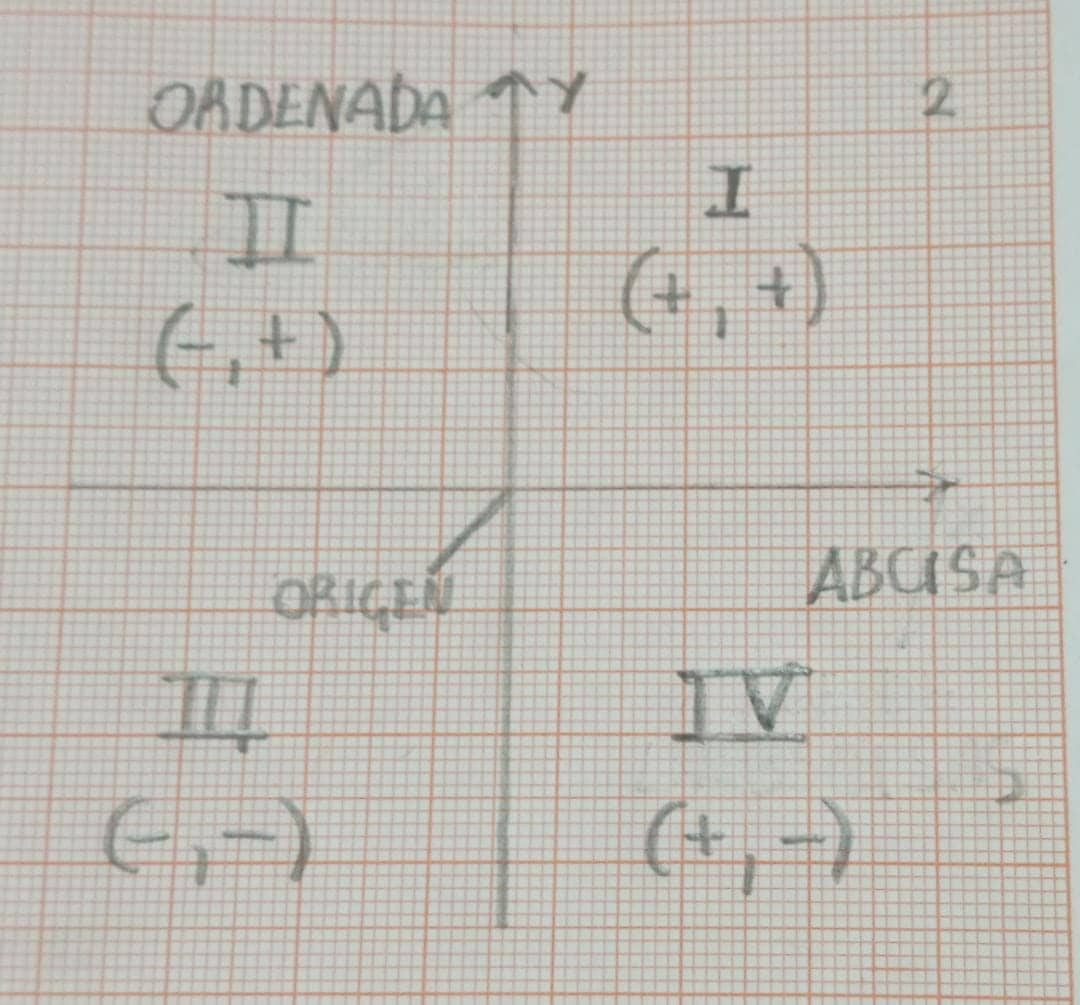 ORDENADA Y 2
II I
(-,+) (+,+)
ORIGEN ABCISA
III IV
(-,-) (+,-)